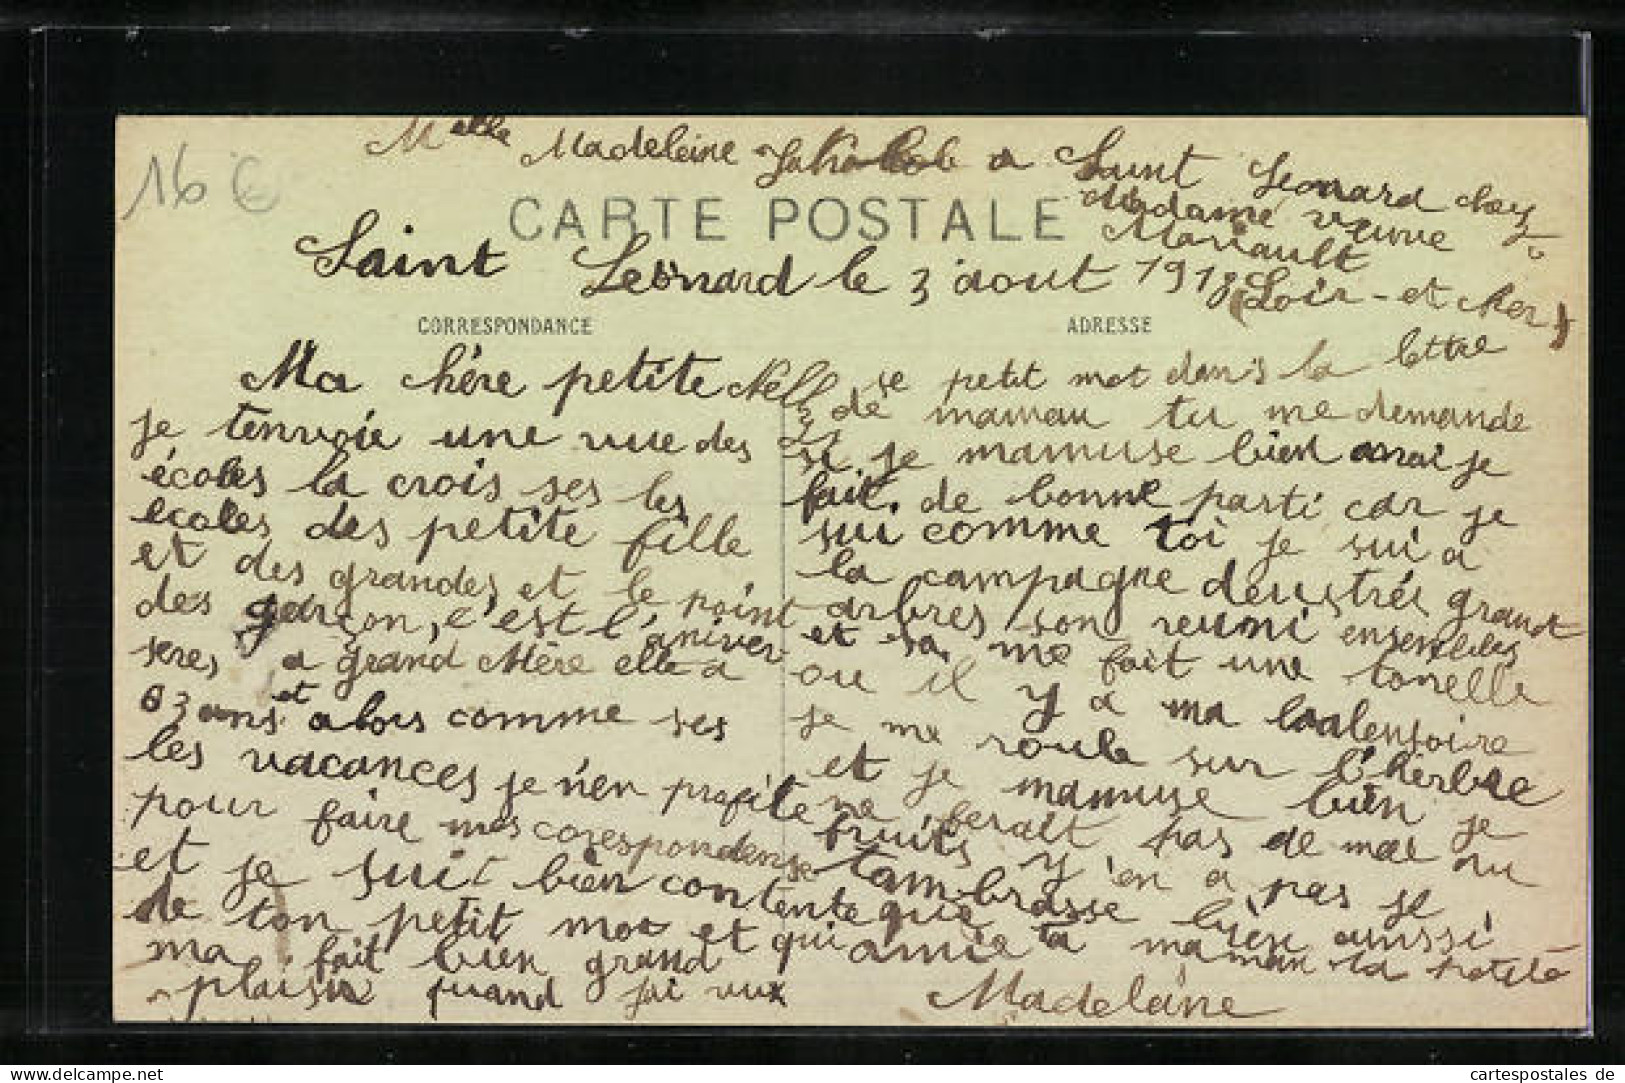 16 €
Melle Madeleine a Saint Leonard chez
Madame veuve
Mariault
CARTE POSTALE
Saint Leonard le 3 aout 1918 (Loir-et Cher)
CORRESPONDANCE
ADRESSE
Ma chère petite Nelly
je tenvoie une vue des
écoles la crois ses les
écoles des petite fille
et des grandes et le point
des garçon, c'est l'aniver
seres a grand Mère elle a
83 ans et alors comme ses
les vacances je n'en profite
pour faire mes corespondense
et je suit bien contente que
de ton petit mot et qui
ma fait bien grand
plaisir quand jai vux
se petit mot dans la lettre
de maman tu me demande
si je mamuse bien je
fait de bonne parti car je
sui comme toi je sui a
la campagne deustrés grand
arbres son reuni ensembles
et sa me fait une tonelle
ou il y a ma balensoire
je me roule sur l'herbre
et je mamuse bien je
ne ferait pas de mal au
fruits y'en a pas je
tambrasse bien aussi
ta maman ta petite
amie
Madeleine
cartespostales de